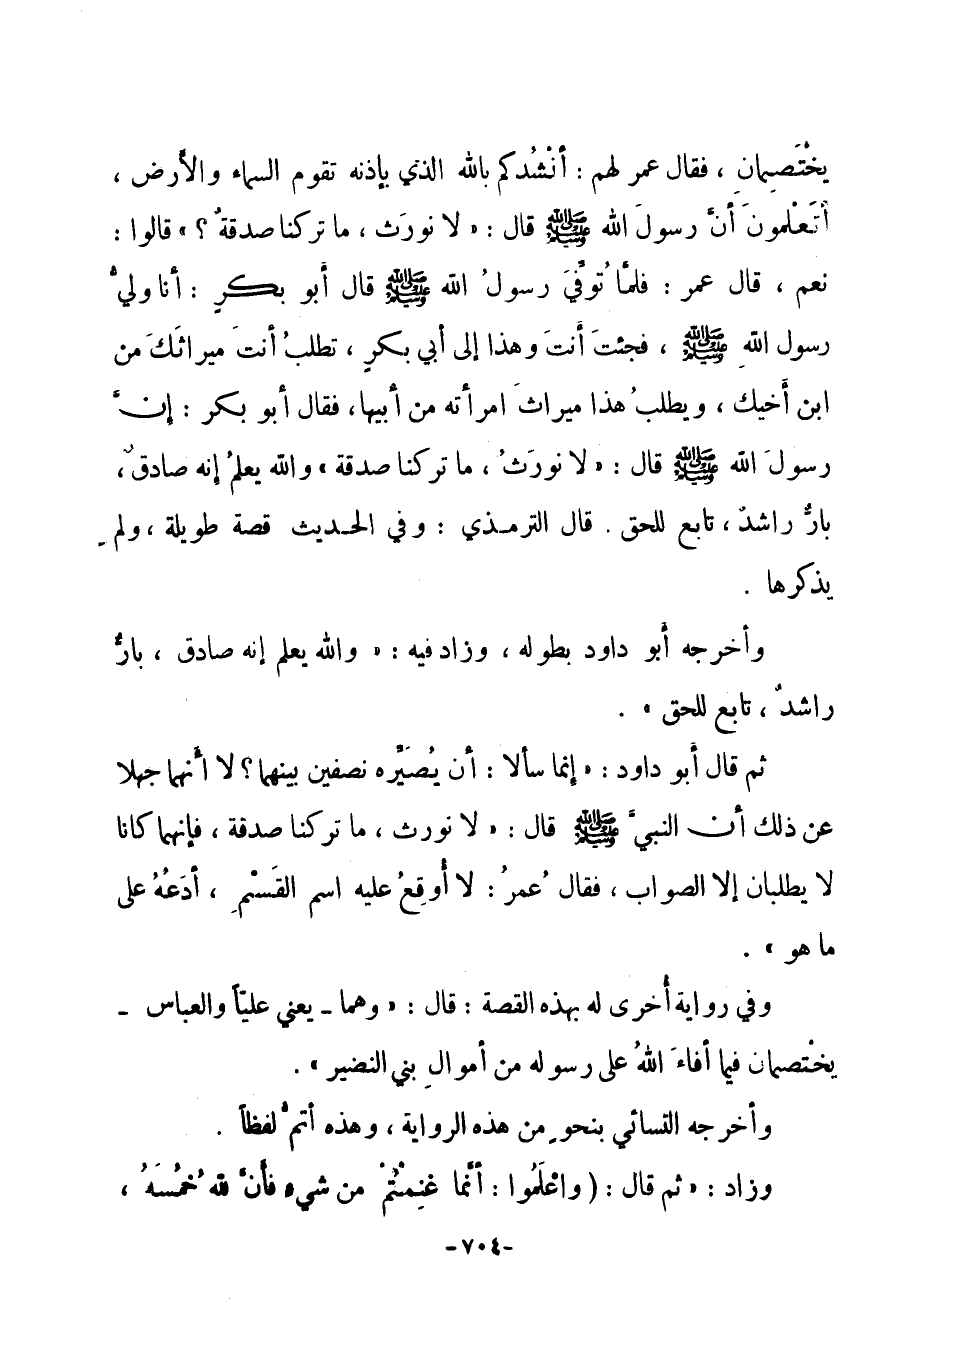 يخْتَصِمانِ ، فقال عمر لهم : أنْشُدكم بالله الذي بإذنه تقوم السماء والأرض ،
أتَعْلمونَ أنَّ رسولَ الله ﷺ قال : « لا نورَث ، ما تركنا صدقةٌ ؟ » قالوا :
نعم ، قال عمر : فلمَّا تُوفِّيَ رسولُ الله ﷺ قال أبو بكرٍ : أنا وليُّ
رسول اللهِ ﷺ ، فجئتَ أنتَ وهذا إلى أبي بكرٍ ، تطلبُ أنتَ ميراثَكَ من
ابن أخيك ، ويطلبُ هذا ميراثَ امرأته من أبيها، فقال أبو بكر : إنَّ
رسولَ الله ﷺ قال : « لا نورَثُ ، ما تركنا صدقة » والله يعلمُ إنه صادقٌ،
بارٌّ راشدٌ ، تابع للحق . قال الترمـذي : وفي الحـديث قصة طويلة ، ولم
يذكرها .
وأخرجه أبو داود بطوله ، وزاد فيه : « والله يعلم إنه صادق ، بارٌّ
راشدٌ ، تابع للحق » .
ثم قال أبو داود : « إنما سألا : أن يُصَيِّره نصفين بينهما؟ لا أنهما جهلا
عن ذلك أن النبيَّ ﷺ قال : « لا نورث ، ما تركنا صدقة ، فإنهما كانا
لا يطلبان إلا الصواب ، فقال عُمرُ : لا أُوقِعُ عليه اسم القَسْمِ ، أدَعُهُ على
ما هو » .
وفي رواية أُخرى له بهذه القصة : قال : « وهما ـ يعني عليّاً والعباس ـ
يخْتصمان فيما أفاءَ اللهُ على رسوله من أموالِ بني النضير » .
وأخرجه النسائي بنحوٍ من هذه الرواية ، وهذه أتمُّ لفظاً .
وزاد : « ثم قال : ( واعْلَمُوا : أنَّما غنِمْتُمْ من شيءٍ فأنَّ لله خُمُسَهُ ،
-٧٠٤-